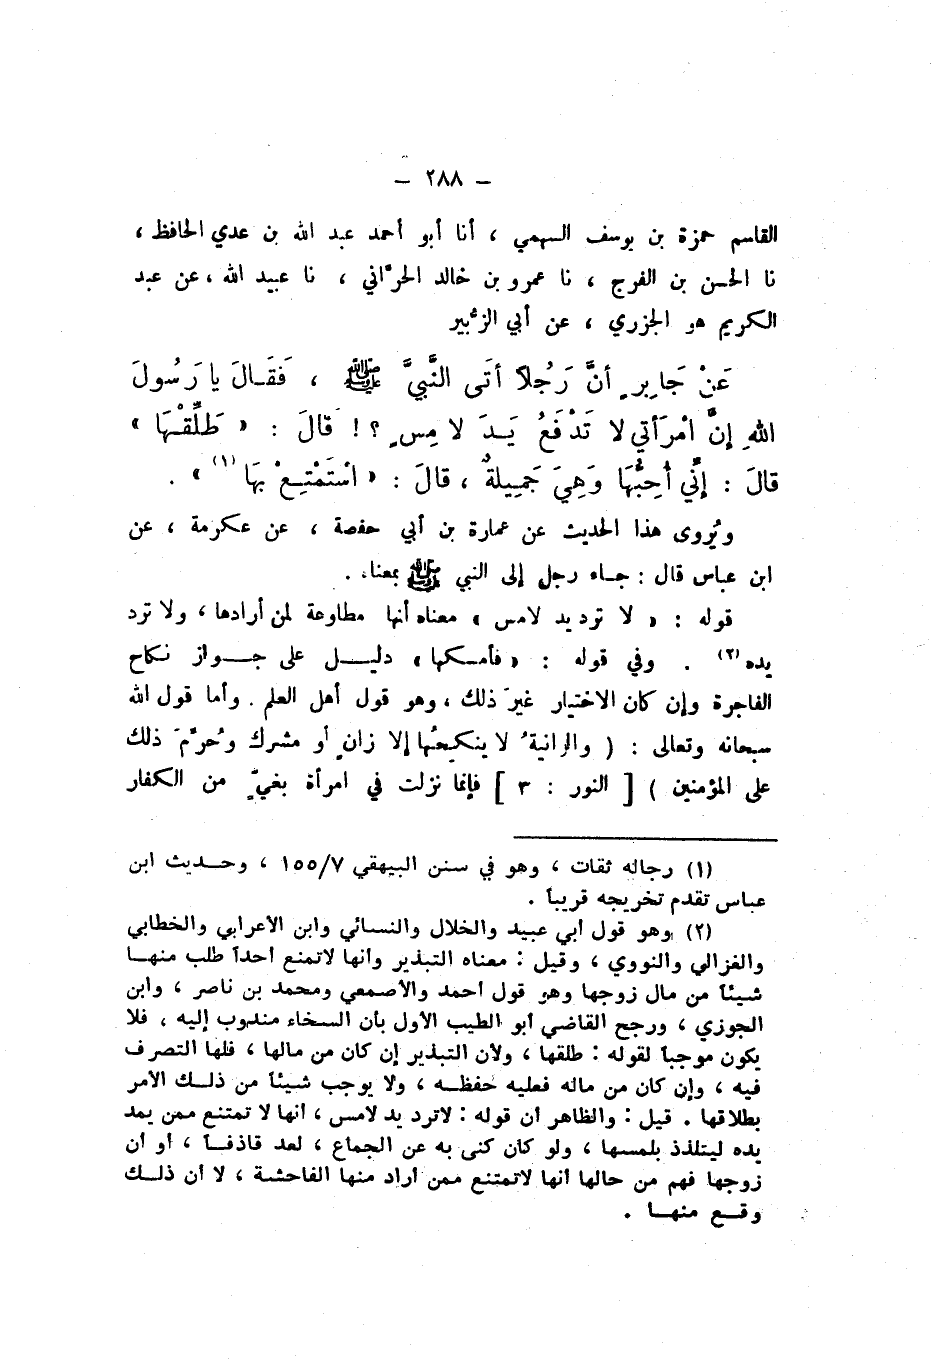 – ٢٨٨ –
القاسم حمزة بن يوسف السهمي ، أنا أبو أحمد عبد الله بن عدي الحافظ ،
نا الحسن بن الفرج ، نا عمرو بن خالد الحرَّاني ، نا عبيد الله ، عن عبد
الكريم هو الجزري ، عن أبي الزُّبير
عَنْ جَابِرٍ أنَّ رَجُلاً أتَى النَّبيَّ ﷺ ، فَقَالَ يا رَسُولَ
اللهِ إنَّ امْرَأتي لا تَدْفَعُ يَدَ لامِسٍ ؟! قَالَ : « طَلِّقْهَا »
قالَ : إنِّي أُحِبُّهَا وَهِيَ جَمِيلةٌ ، قالَ : « اسْتَمْتِعْ بهَا (١) » .
ويُروى هذا الحديث عن عمارة بن أبي حفصة ، عن عكرمة ، عن
ابن عباس قال : جاء رجل إلى النبي ﷺ بمعناه .
قوله : « لا ترد يد لامس » معناه أنها مطاوعة لمن أرادها ، ولا ترد
يده (٢) . وفي قوله : « فأمسكها » دليل على جواز نكاح
الفاجرة وإن كان الاختيار غيرَ ذلك ، وهو قول أهل العلم . وأما قول الله
سبحانه وتعالى : ( والزانيةُ لا ينكِحُها إلا زانٍ أو مشرك وحُرِّمَ ذلك
على المؤمنين ) [ النور : ٣ ] فإنما نزلت في امرأة بغيٍّ من الكفار
(١) رجاله ثقات ، وهو في سنن البيهقي ١٥٥/٧ ، وحديث ابن
عباس تقدم تخريجه قريباً .
(٢) وهو قول أبي عبيد والخلال والنسائي وابن الأعرابي والخطابي
والغزالي والنووي ، وقيل : معناه التبذير وأنها لاتمنع أحداً طلب منها
شيئاً من مال زوجها وهو قول أحمد والأصمعي ومحمد بن ناصر ، وابن
الجوزي ، ورجح القاضي أبو الطيب الأول بأن السخاء مندوب إليه ، فلا
يكون موجباً لقوله : طلقها ، ولأن التبذير إن كان من مالها ، فلها التصرف
فيه ، وإن كان من ماله فعليه حفظه ، ولا يوجب شيئاً من ذلك الأمر
بطلاقها . قيل : والظاهر أن قوله : لاترد يد لامس ، أنها لا تمتنع ممن يمد
يده ليتلذذ بلمسها ، ولو كان كنى به عن الجماع ، لعد قاذفاً ، أو أن
زوجها فهم من حالها أنها لاتمتنع ممن أراد منها الفاحشة ، لا أن ذلك
وقع منها .